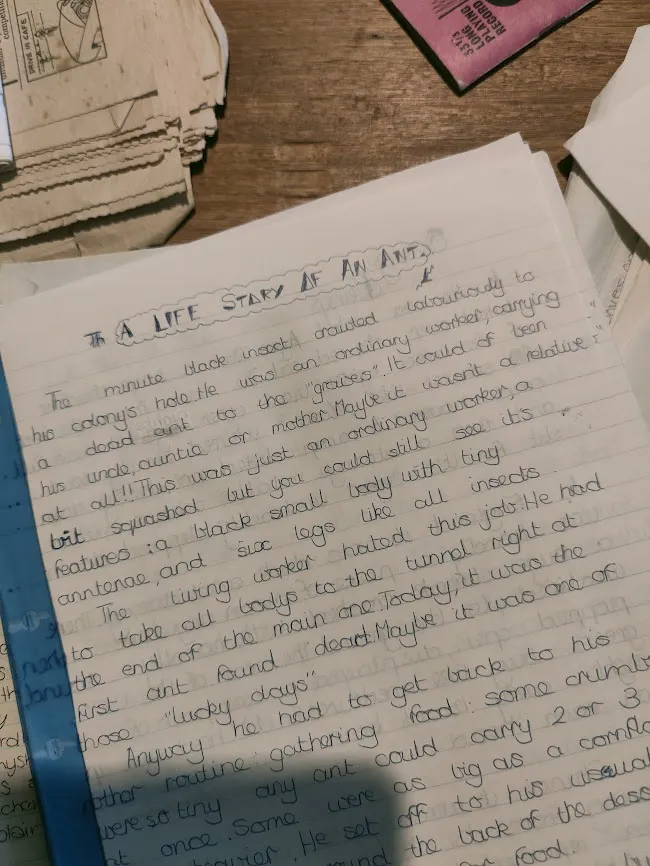 DRIVE IN CAFE
33 1/3
LONG
PLAYING
RECORD
Th A LIFE STORY OF AN ANT.
The minute black insect crawled labouriously to
his colony's hole. He was an ordinary worker, carrying
a dead ant to the "graves". It could of been
his uncle, auntie or mother. Maybe it wasn't a relative
at all!! This was just an ordinary worker, a
bit squashed but you could still see it's
features: a black small body with tiny
anntenae, and six legs like all insects.
The living worker hated this job. He had
to take all bodys to the tunnel right at
the end of the main one. Today, it was the
first ant found dead. Maybe it was one of
those "lucky days"
Anyway he had to get back to his
other routine: gathering food. Some
were so tiny any ant could carry 2 or 3
at once. Some were as big as a
He set off to his usual
the back of the
food.